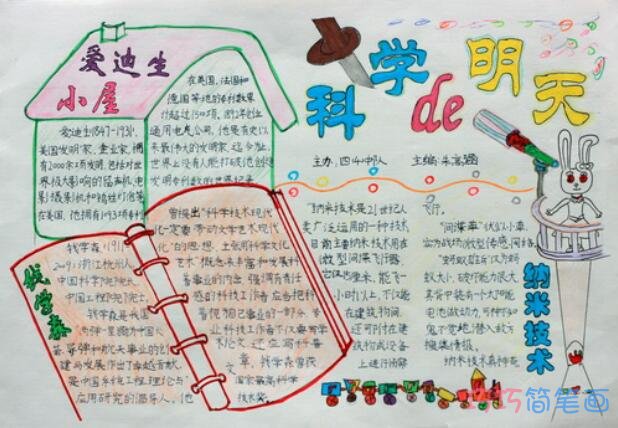 科学de明天
主办：四4中队
主编：
爱迪生
小屋
爱迪生(1847-1931),
美国发明家、企业家,拥
有2000余项发明,包括对世
界极大影响的留声机、电
影摄影机和钨丝灯泡等。
在美国,他拥有1093项专利
在英国、法国和
德国等地的专利数累
计超过1500项。1892年创立
通用电气公司。他是有史以
来最伟大的发明家。迄今为止,
世界上没有人能打破他创造
发明专利数的世界纪录。
钱学森
钱学森(1911
2009)浙江杭州人
中国科学院院士,
中国工程院院士,
钱学森是我国
两弹一星
导弹和航天事业的创
建与发展作出了卓越贡献,
是中国
应用研究的倡导人。他
曾提出"科学技术现代
化一定要带动文学艺术现代
化"的思想。主张用科学文化
艺术"概念来丰富和发展科
普事业的内容,强调有责任
感的科技工作者应当把科
普视为自己事业的一部分,专
业科技工作者不仅要写学
术论文,还应写科普
文章,钱学森曾获
国家最高科学
技术奖。
"纳米技术是21世纪人
类广泛运用的一种技术,
目前主要纳米技术用在
微型间谍飞行器。
它体
小时以上,不仅能
在建筑物间
还可附在建
筑物或设备
上进行侦察
飞行。
"间谍草"
官为战场微型传感网络。
蚂蚁
蚁大小,破坏能力很大
其背中装有一个太阳能
电池做动力,可神不知
鬼不觉地潜入敌方
搜集情报。
纳米技术真神奇
纳米技术
巧巧简笔画